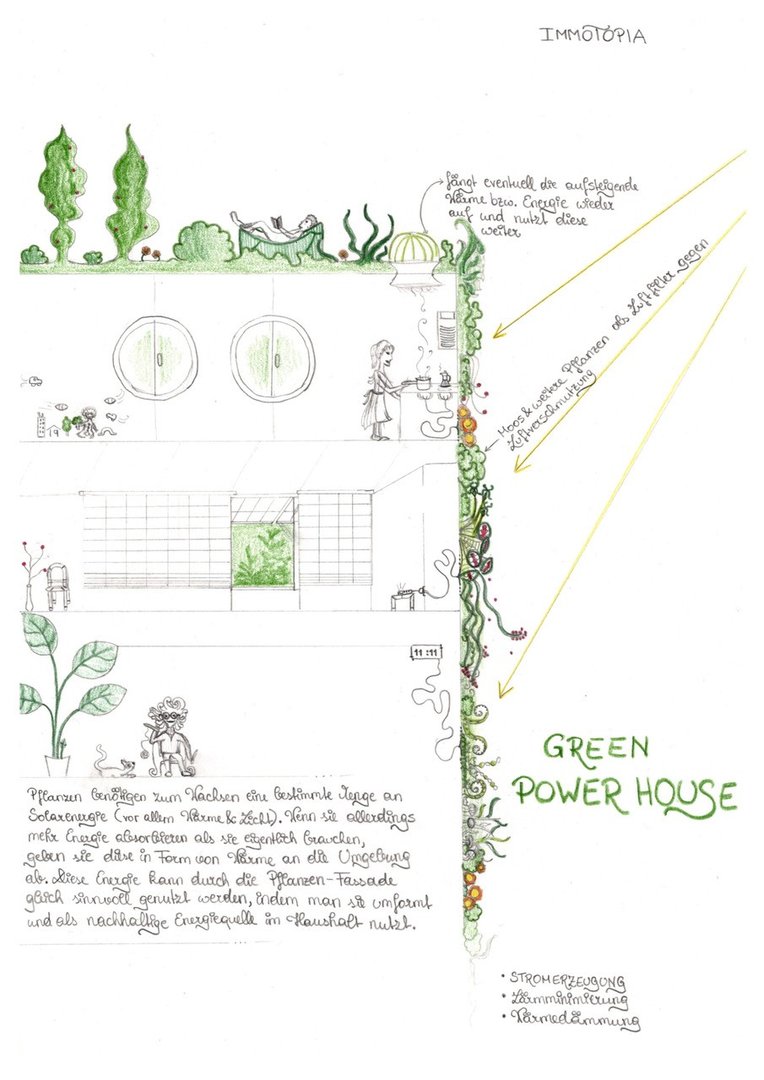 IMMOTOPIA
fängt eventuell die aufsteigende
Wärme bzw. Energie wieder
auf und nutzt diese
weiter
Moos & weitere Pflanzen als Luftfilter gegen
Luftverschmutzung
11:11
GREEN
POWER HOUSE
Pflanzen benötigen zum Wachsen eine bestimmte Menge an
Solarenergie (vor allem Wärme & Licht). Wenn sie allerdings
mehr Energie absorbieren als sie eigentlich brauchen,
geben sie diese in Form von Wärme an die Umgebung
ab. Diese Energie kann durch die Pflanzen-Fassade
gleich sinnvoll genutzt werden, indem man sie umformt
und als nachhaltige Energiequelle im Haushalt nutzt.
• STROMERZEUGUNG
• Lärmminimierung
• Wärmedämmung